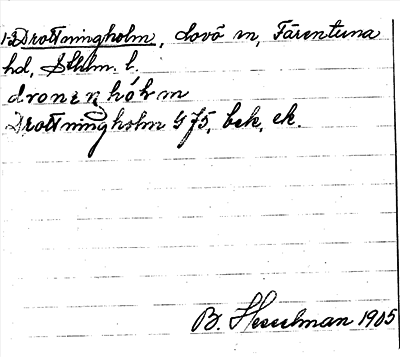 1-3 Drottningholm, Lovö sn, Färentuna
hd, Sthlm. l.
Drottningholm G 75, bek, ek.
B. Hesselman 1905